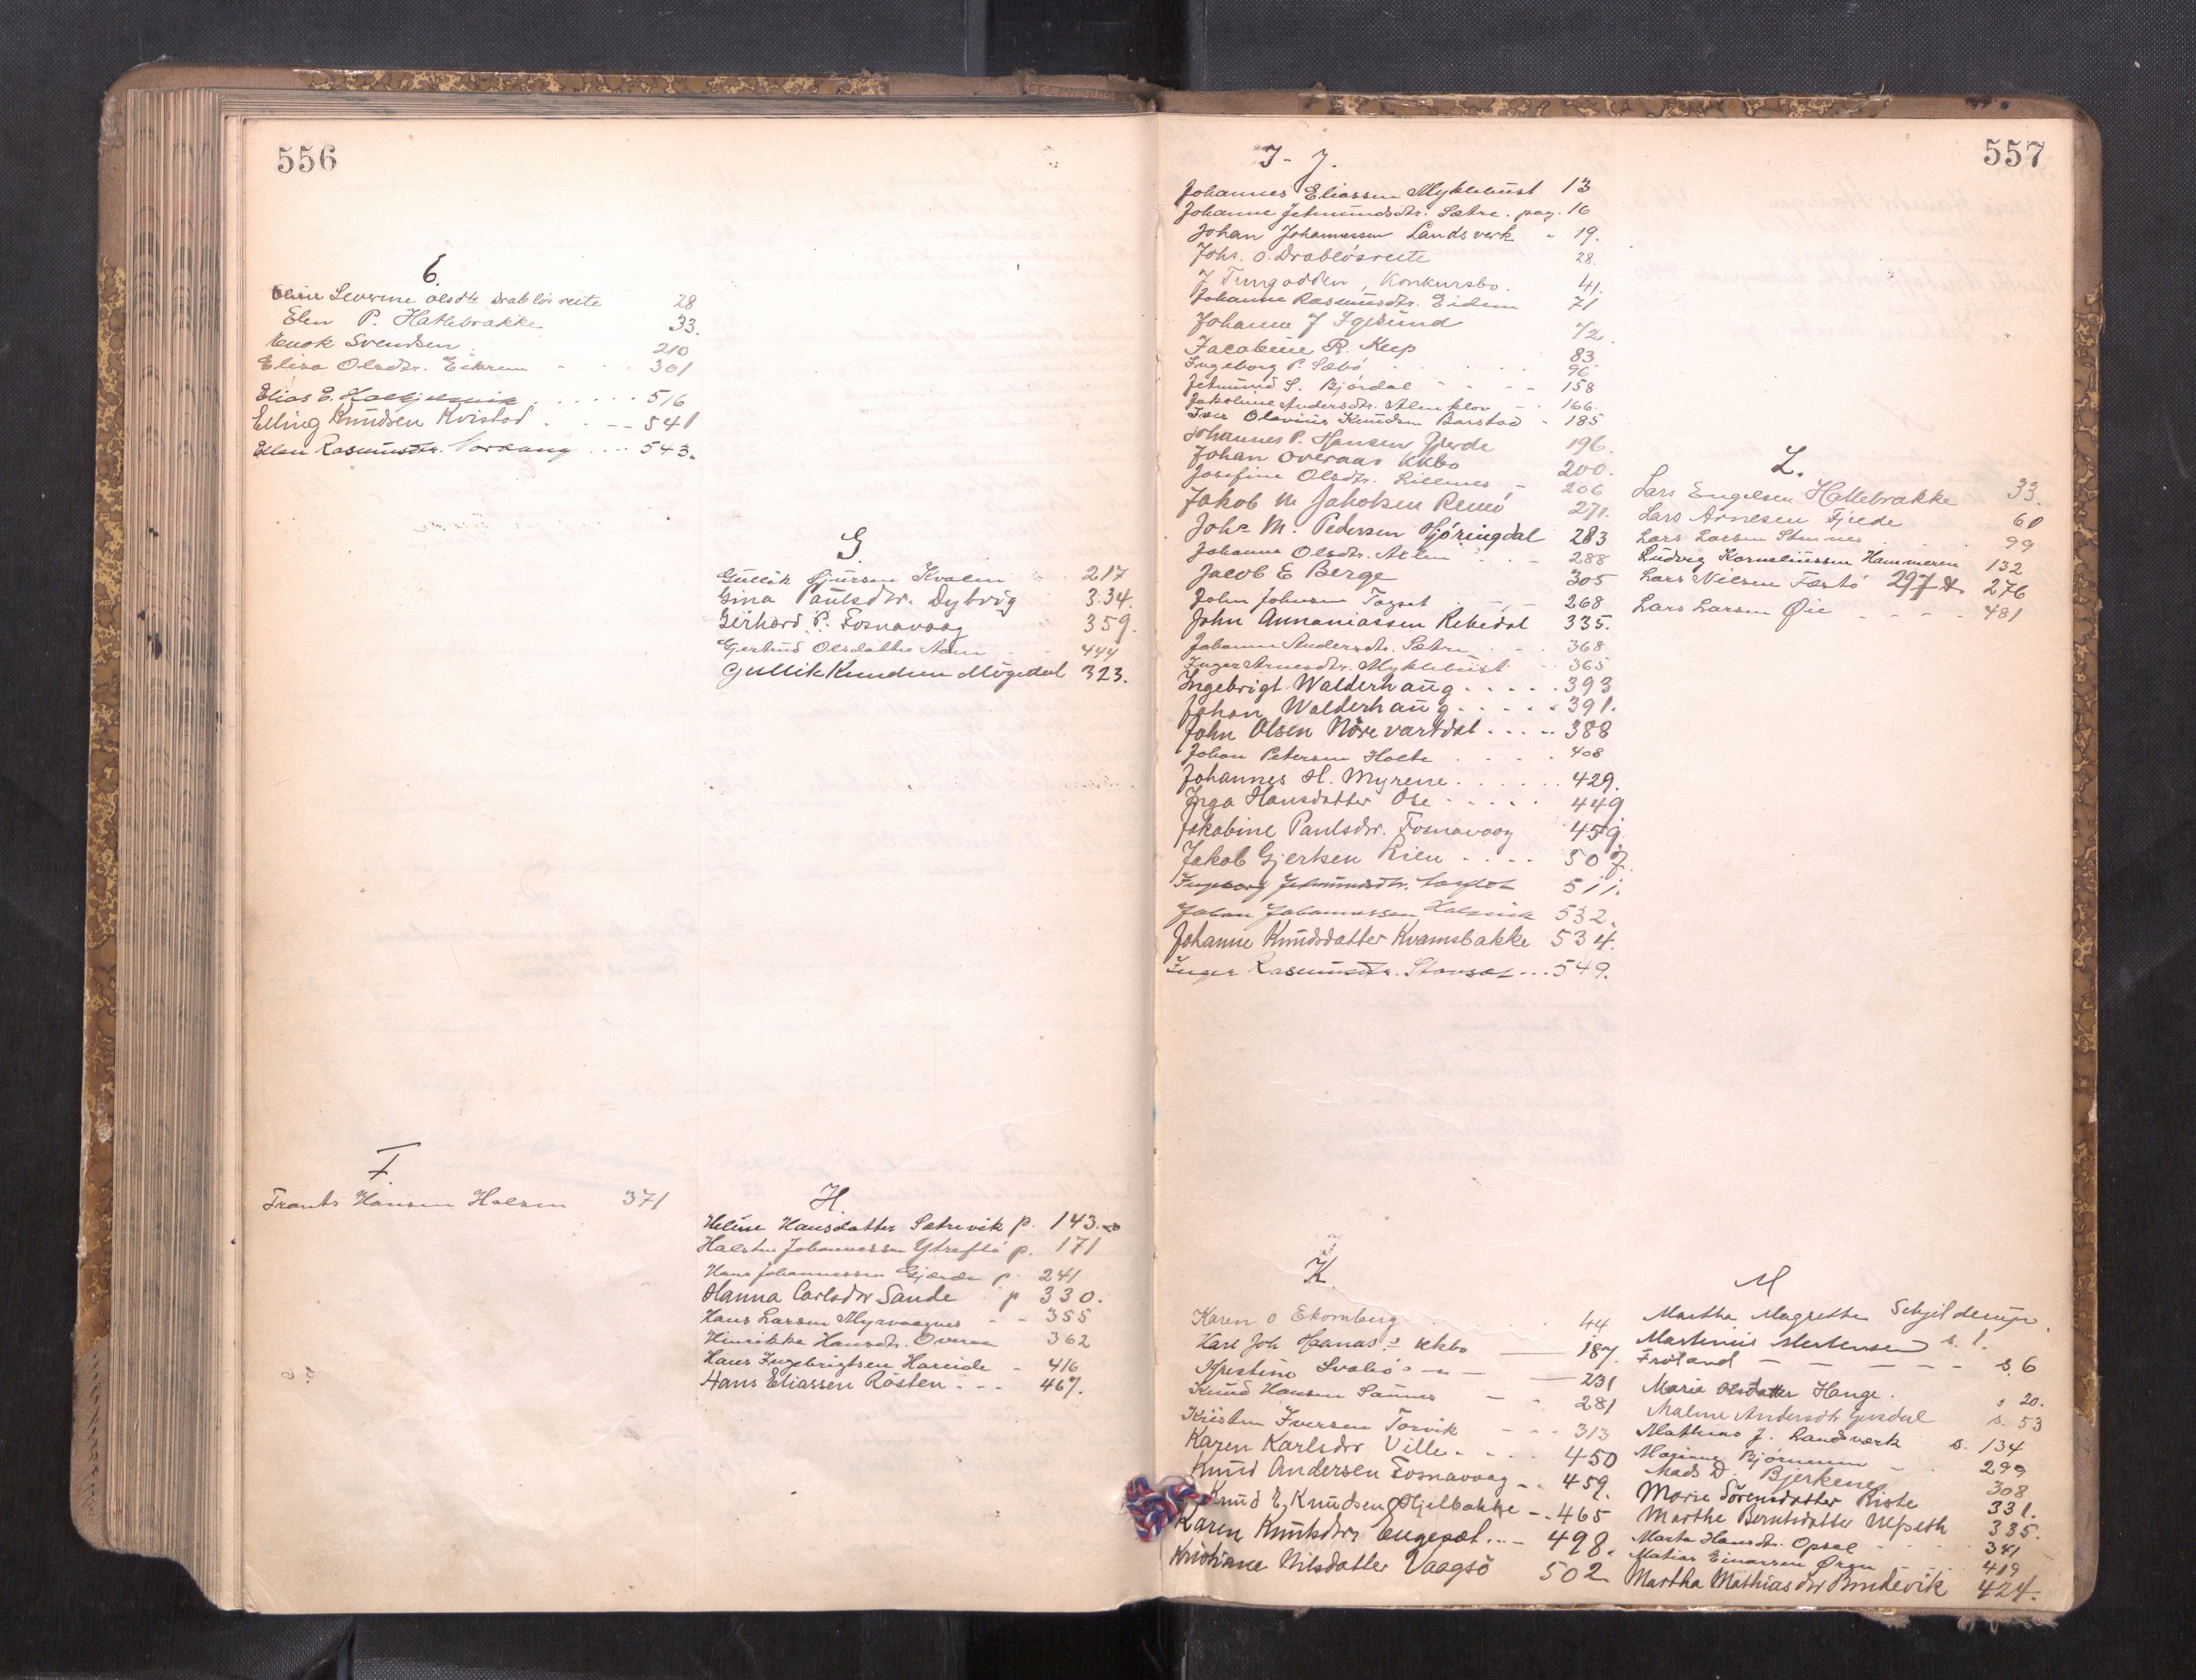 556
E.
Oline Severine Olsdtr Drabløsreite 28
Elen P. Hatlebrakke 33.
Enok Svendsen 210
Elisa Olsdtr. Eikrem - - - 301
Elias E. ...... 516
Elling Knudsen Kvistad . . -- 541
Ellen Rasmusdtr. .... 543.
G
Gullik Sjursen Kvalen 217
Gina Paulsdtr. Dybvig 334.
Gerhard P. Fosnavaag 359.
Gjertrud Olsdatter 444
Gullik Knudsen Møgedal 323.
F.
Frants Hansen Halsen 371
H.
Heline Hansdatter Sætrevik p. 143.
Halsten Johannessen Ytreflø p. 171
Hans Johannessen Gjærde p. 241
Hanna Carlsdtr Sande p 330.
Hans Larsen Myrvaagnes - - 355
Hinrikke Hansdtr. Overaa 362
Hans Ingebrigtsen Hareide - 416
Hans Eliassen Røsten . -- 467.
557
I - J.
Johannes Eliassen Myklebust 13
Johanne Jetmundsdtr. Sætre. pag. 16
Johan Johannessen Landsverk - 19.
Johs. O. Drabløsreite 28.
J. Tungodden, Konkursbo. 41.
Johanne Rasmusdtr. Eidem 71
Johanne J 72.
Jacobine R. Keip 83
Ingeborg P. Sæbø . . . . . 96
Jetmund S. Bjørdal - - - - 158
Jakobine Andersdtr. - - 166.
Iver Olavius Knudsen Barstad - 185
Johannes P. Hansen Gjerde 196.
Johan Overaas kkbo 200.
Josefine Olsdtr. Lillenes - 206
Jakob M Jakobsen Remø 271.
Johs M. Pedersen Hjøringdal 283
Johanne Olsdtr. - - - 288
Jacob E Berge 305
John Johnsen - - - 268
John Annaniassen Rebedal 335.
Johanne Andersdtr. Sætre - - 368
Inger Arnesdtr. Myklebust - - 365
Ingebrigt Walderhaug . . . . . 393
Johan Walderhaug . . . . . 391.
John Olsen Nørevartdal . . . -- 388
Johan Petersen Holte . . . . 408
Johannes H. Myrene . . . . . . 429.
Inga Hansdatter Ose - - - - . 449
Jakobine Paulsdtr. Fosnavaag 459.
Jakob Gjertsen Lien - . . . . 507.
Ingeborg Jetmundsdtr. 511.
Johan Johannessen Halsvik 532.
Johanne Knudsdatter Kvamsbakke 534.
Inger Rasmusdtr. ... 549.
L.
Lars Engelsen Hatlebrakke 33.
Lars Arnesen Fjede 60
Lars Larsen Stennes 99
Ludvig Korneliussen Hammeren 132
Lars Nilsen Færstø 297 & 276
Lars Larsen Øie - - - - 481
K.
Karen O Ekornberg 44
Karl Joh Haanas kkbo — 187.
Kristine — 231
Knud Hansen Sannes - - 281
Kristen Iversen Torvik - - - 313
Karen Karlsdtr Ville - - - - 450
Knud Andersen Fosnavaag - - 459.
Knud E. Knudsen Hjelbakke -..465
Karen Knutsdtr. Engeset . . . - 498.
Kristiane Nilsdatter Vaagsø 502
M
Martha Magrethe Schjelderup s. 1.
Martinus Mortensen
Frøland - - - - - s. 6
Maria Olsdatter Hauge . s 20.
Malene Andersdtr s. 53
Mathias J. Landsværk s. 134
299
Mads D. Bjerkenes 308
Marie Sørensdatter Riste 331.
Marthe Berntsdatter Ulfseth 335.
Marta Hansdtr. Opsal - - - 341
Matias Einarsen Ørsen - - 419
Martha Mathiasdtr Bondevik 424.